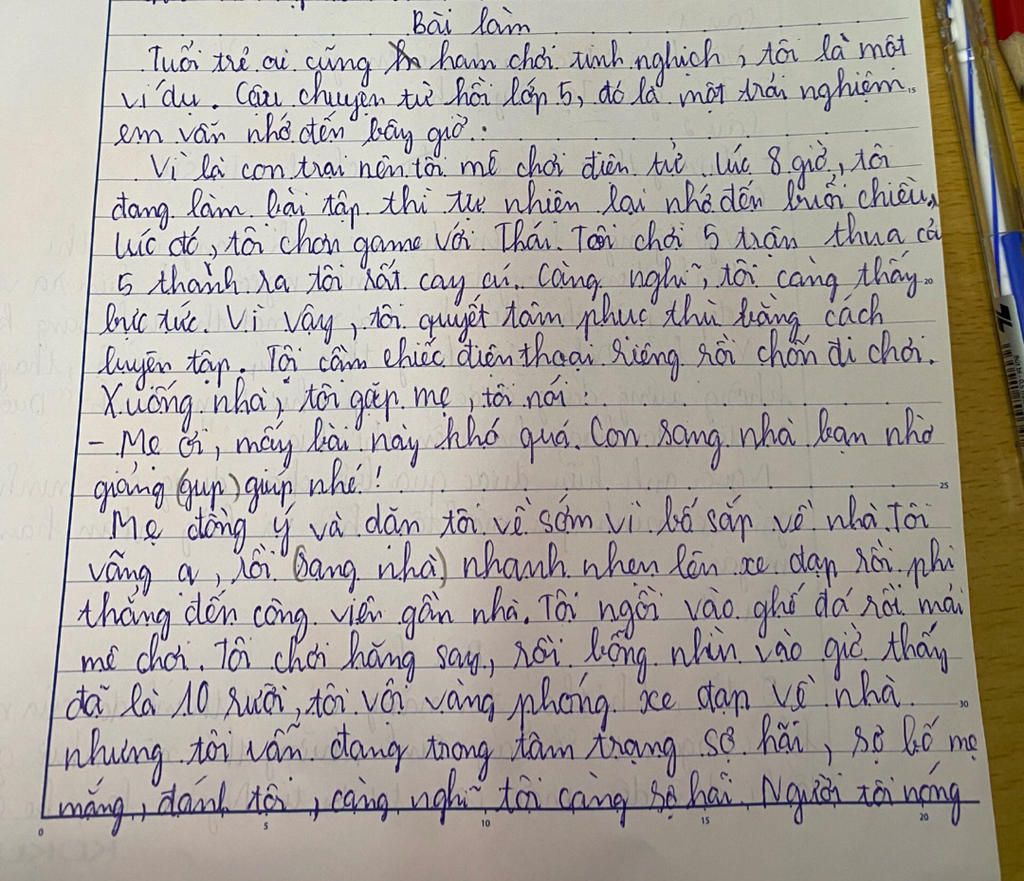 Bài làm
Tuổi trẻ ai cũng ham chơi tinh nghịch, tôi là một
ví dụ. Câu chuyện từ hồi lớp 5, đó là một trải nghiệm
em vẫn nhớ đến bây giờ.
Vì là con trai nên tôi mê chơi điện tử. Lúc 8 giờ, tôi
đang làm bài tập thì tự nhiên lại nhớ đến buổi chiều,
lúc đó, tôi chơi game với Thái. Tôi chơi 5 trận thua cả
5 thành ra tôi rất cay cú. Càng nghĩ, tôi càng thấy
bực tức. Vì vậy, tôi quyết tâm phục thù bằng cách
luyện tập. Tôi cầm chiếc điện thoại riêng rồi chốn đi chơi.
Xuống nhà, tôi gặp mẹ, tôi nói:
- Mẹ ơi, mấy bài này khó quá. Con sang nhà bạn nhờ
giảng (gup) giúp nhé!
Mẹ đồng ý và dặn tôi về sớm vì bố sắp về nhà. Tôi
vâng ạ, rồi (sang nhà) nhanh nhẹn lên xe đạp rồi phi
thẳng đến công viên gần nhà. Tôi ngồi vào ghế đá rồi mải
mê chơi. Tôi chơi hăng say, rồi bỗng nhìn vào giờ thấy
đã là 10 rưỡi, tôi vội vàng phóng xe đạp về nhà.
nhưng tôi vẫn đang trong tâm trạng sợ hãi, sợ bố mẹ
mắng, đánh tôi, càng nghĩ tôi càng sợ hãi. Người tôi nóng